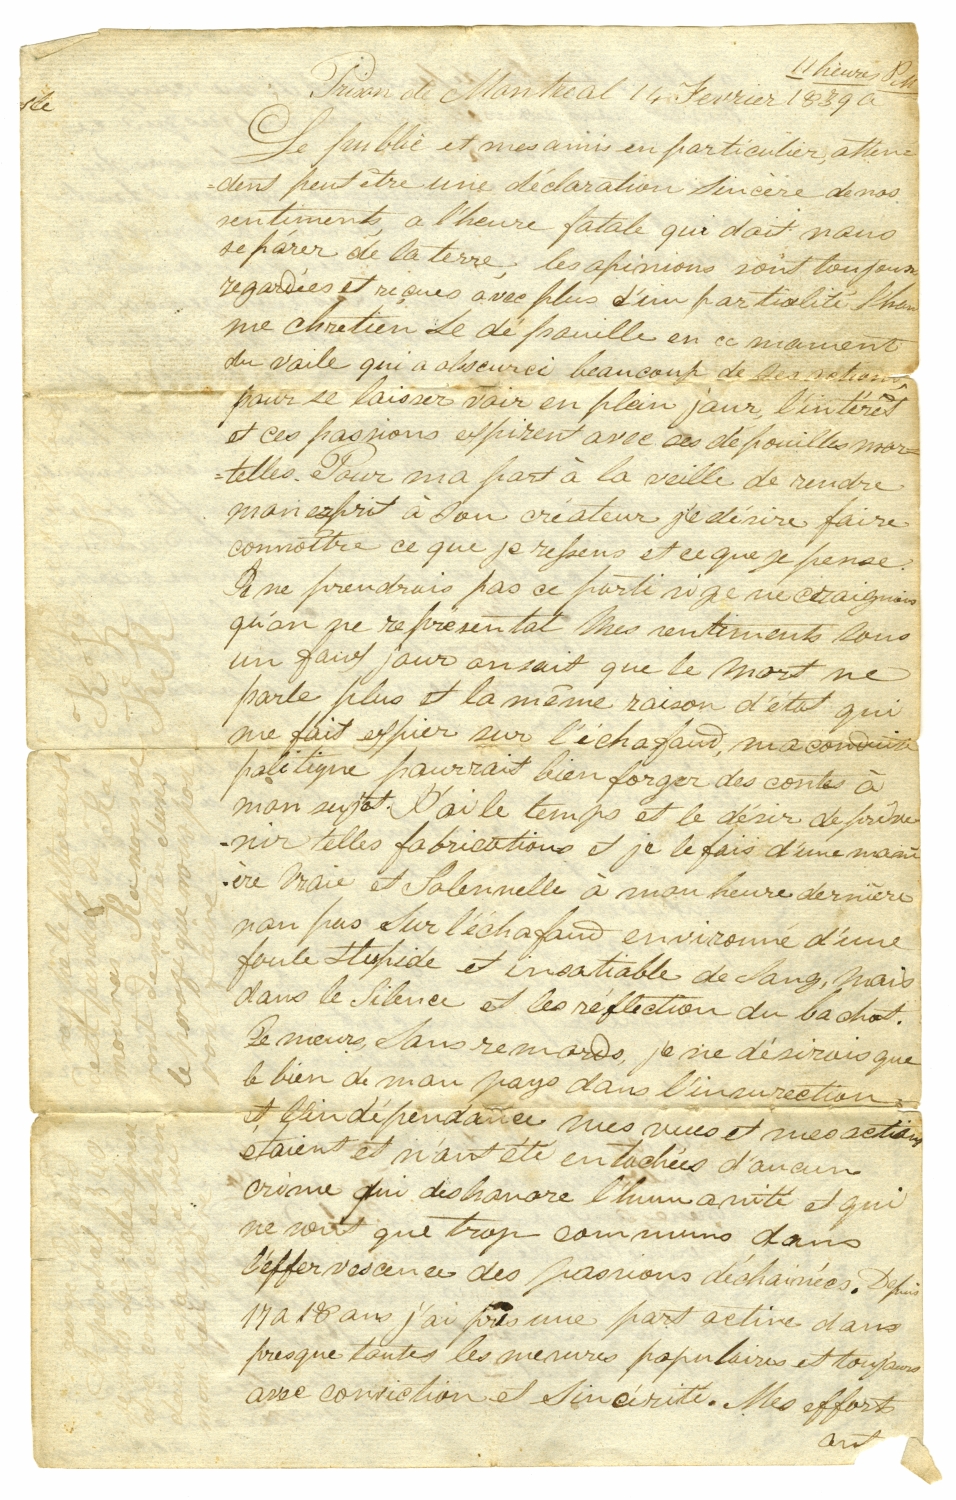 11 heures P.M
Prison de Montreal 14 Fevrier 1839 a
Le public et mes amis en particulier, atten
=dent peut être une déclaration sincère de nos
sentiments, a l'heure fatale qui doit nous
sepárer de la terre, les opinions sont toujours
regardées et reçues avec plus d'impartialité. L'hom
me chretien se dépouille en ce moment
du voile qui a obscurci beaucoup de ses actions
pour se laisser voir en plein jour, l'intérêt
et ces passions expirent avec ses dépouilles mor=
=telles. Pour ma part à la veille de rendre
mon esprit à son créateur je désire faire
connoître ce que je ressens et ce que je pense.
Je ne prendrais pas ce parti si je ne craignais
qu'on ne représentat mes sentiments sous
un faux jour on sait que le mort ne
parle plus et la même raison d'état qui
me fait expier sur l'échafaud, ma conduite
politique pourrait bien forger des contes à
mon sujet. J'ai le temps et le désir de préve
-nir telles fabrications et je le fais d'une mani
-ère vraie et Solennelle à mon heure dernière
non pas sur l'échafaud environné d'une
foule stupide et insatiable de sang, mais
dans le silence et les réflection du cachot.
Je meurs sans remords, je ne désirois que
le bien de mon pays dans l'insurection
et l'indépendance mes vues et mes actions
etaient et n'ont été entachées d'aucun
crime qui deshonore l'humanité et qui
ne sont que trop communs dans
l'effervescence des passions déchainées. Depuis
17 a 18 ans j'ai pris une part active dans
presque toutes les mesures populaires et toujours
avec conviction et sincérité. Mes efforts
ont